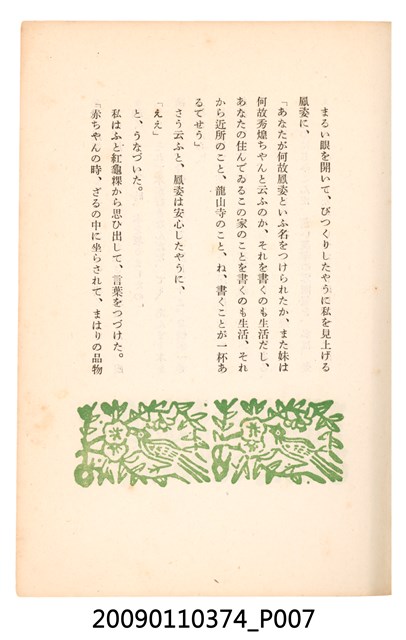 まるい眼を開いて、びつくりしたやうに私を見上げる
鳳姿に、
「あなたが何故鳳姿といふ名をつけられたか、また妹は
何故秀煌ちやんと云ふのか、それを書くのも生活だし、
あなたの住んでゐるこの家のことを書くのも生活、それ
から近所のこと、龍山寺のこと、ね、書くことが一杯あ
るでせう」
さう云ふと、鳳姿は安心したやうに、
「ええ」
と、うなづいた。
私はふと紅龜粿から思ひ出して、言葉をつづけた。
「赤ちやんの時、ざるの中に坐らされて、まはりの品物
20090110374_P007